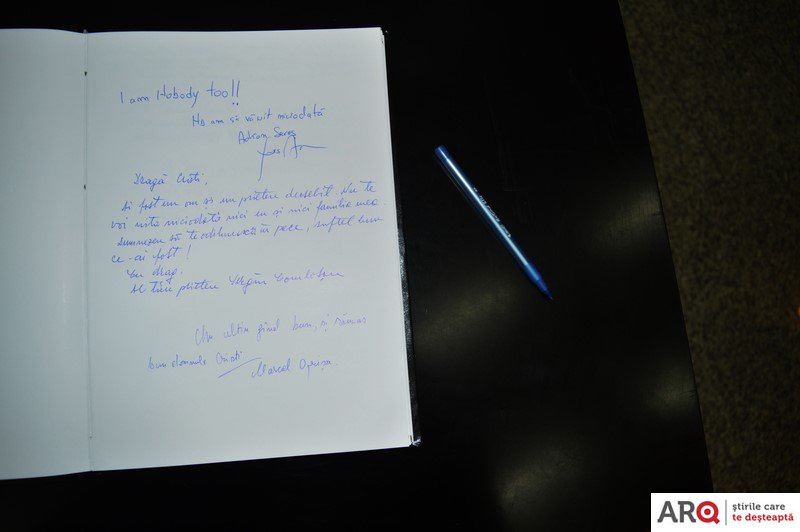 I am Nobody too!!
N-am să vă uit niciodată
Adrian
Dragă Cristi,
Ai fost un om și un prieten deosebit. Nu te
voi uita niciodată nici eu și nici familia mea.
Dumnezeu să te odihnească în pace, suflet bun
ce-ai fost!
Cu drag,
Al tău prieten
Un ultim gând bun, și rămas
bun domnule Cristi
Marcel
ARQ
știrile care
te deșteaptă